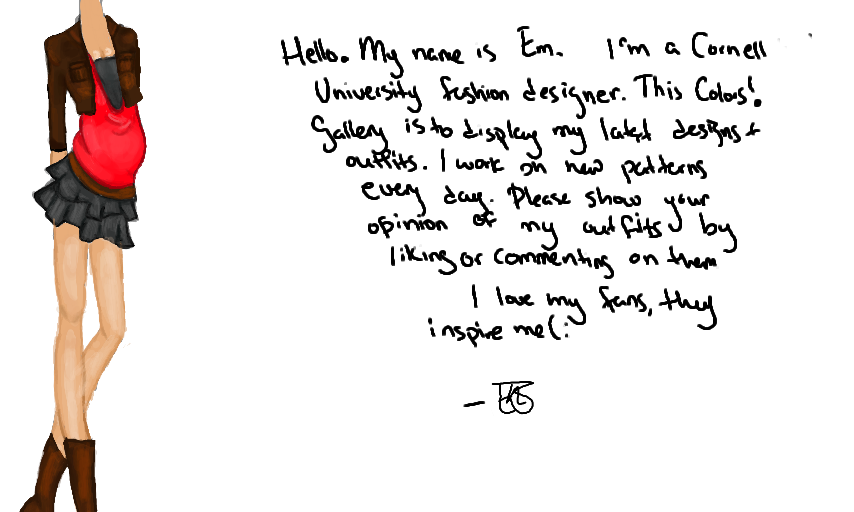 Hello. My name is Em. I'm a Cornell
University fashion designer. This Colors!
Gallery is to display my latest designs +
outfits. I work on new patterns
every day. Please show your
opinion of my outfits by
liking or commenting on them
I love my fans, they
inspire me (: